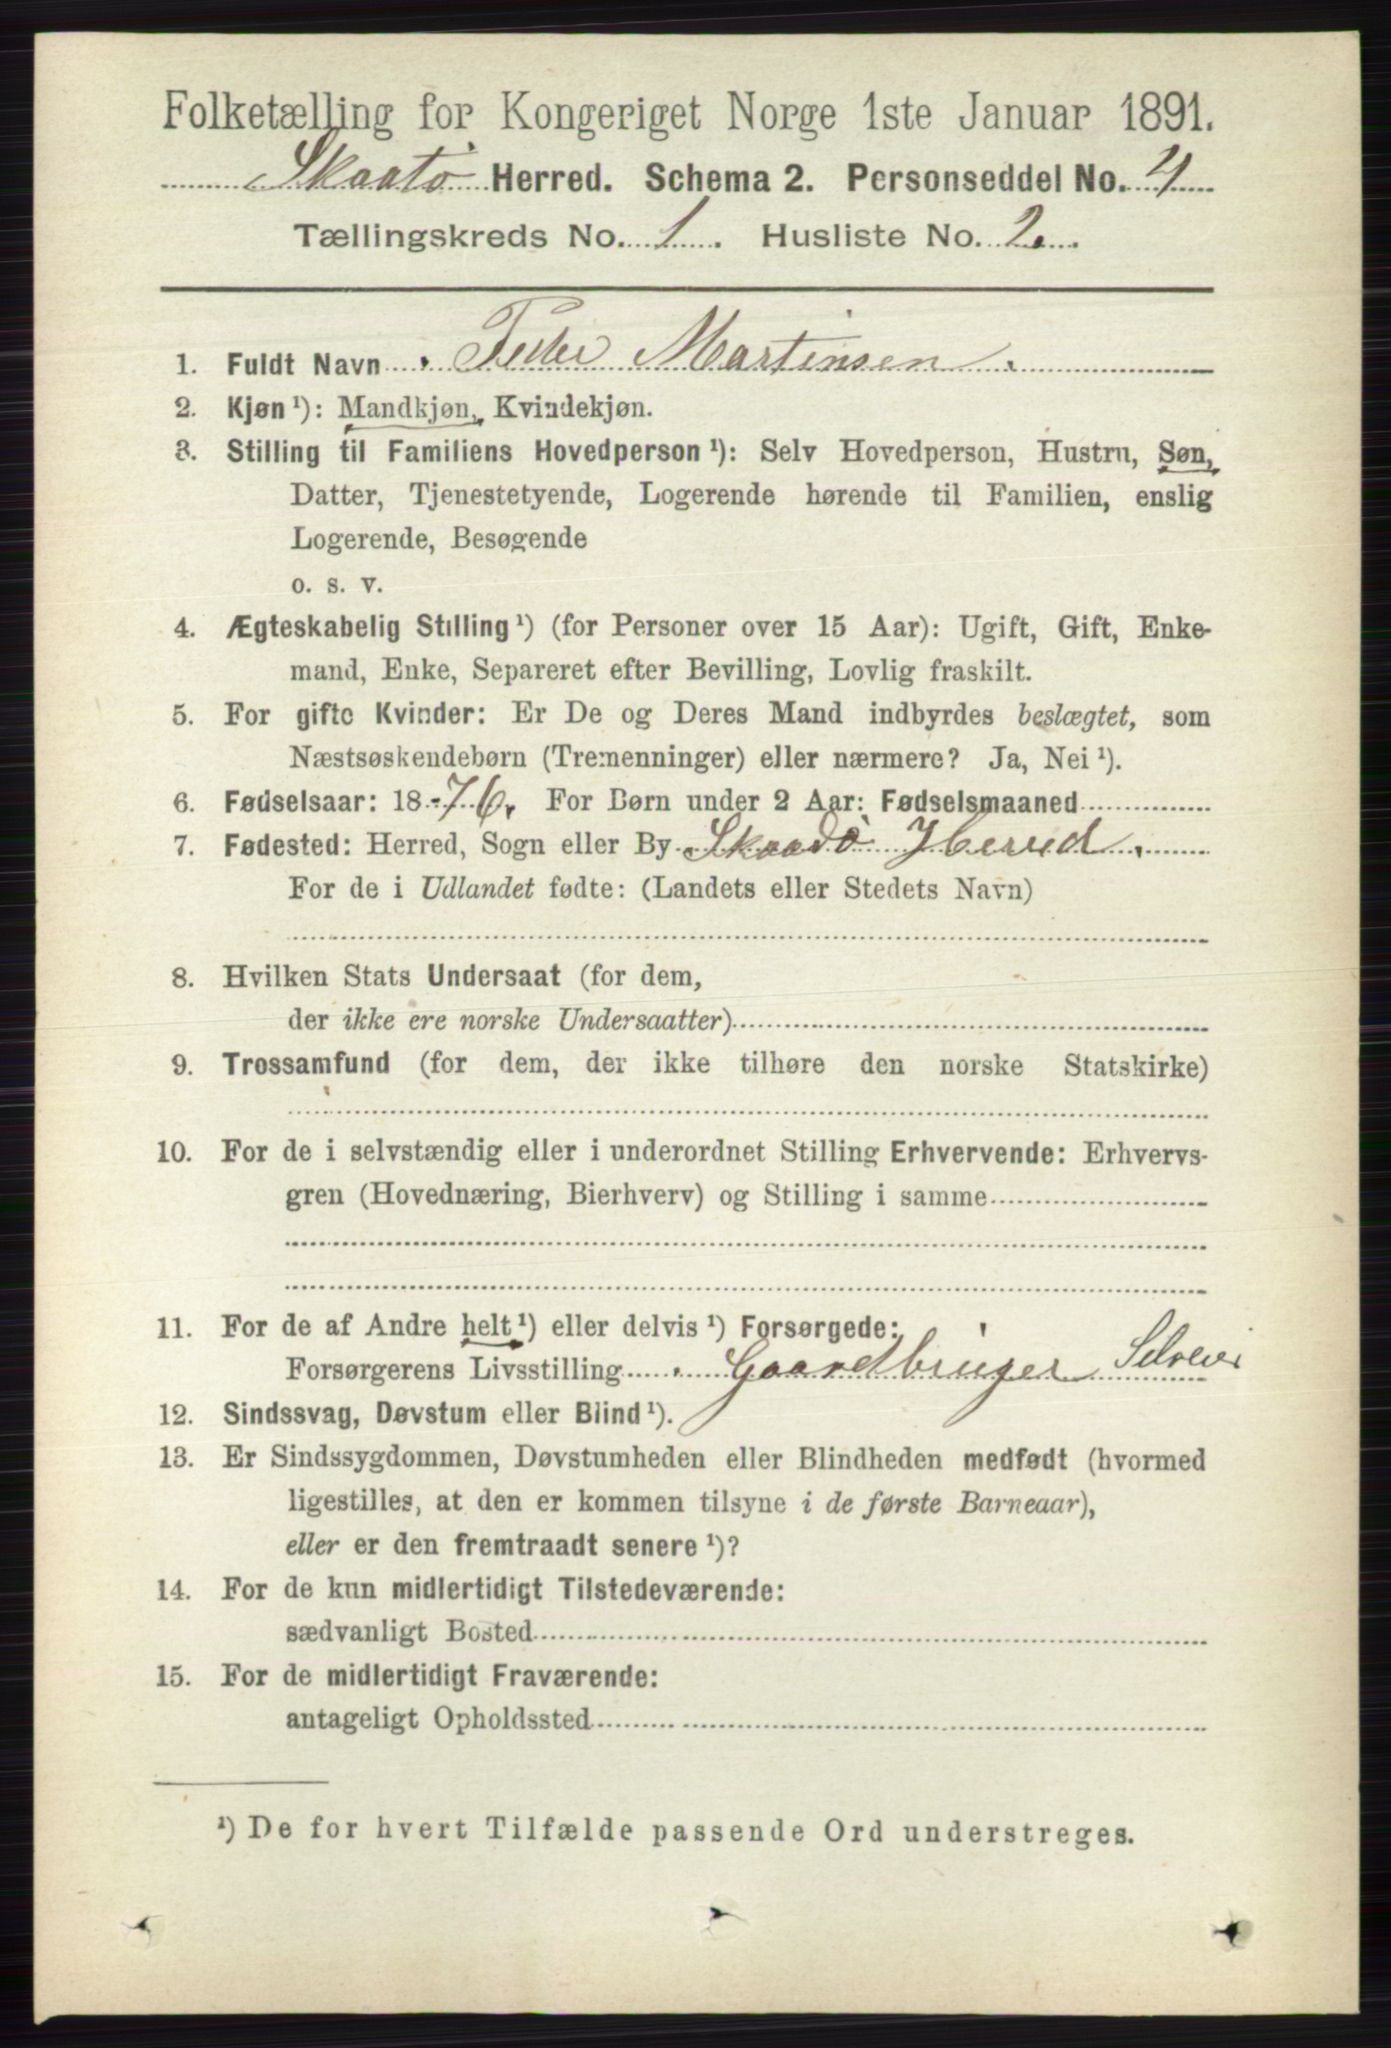 Folketælling for Kongeriget Norge 1ste Januar 1891.
Skaatö Herred. Schema 2. Personseddel No. 4
Tællingskreds No. 1. Husliste No. 2.
1. Fuldt Navn Peder Martinsen.
2. Kjøn ¹): Mandkjøn, Kvindekjøn.
3. Stilling til Familiens Hovedperson ¹): Selv Hovedperson, Hustru, Søn,
Datter, Tjenestetyende, Logerende hørende til Familien, enslig
Logerende, Besøgende
o. s. v.
4. Ægteskabelig Stilling ¹) (for Personer over 15 Aar): Ugift, Gift, Enke-
mand, Enke, Separeret efter Bevilling, Lovlig fraskilt.
5. For gifte Kvinder: Er De og Deres Mand indbyrdes beslægtet, som
Næstsøskendebørn (Tremenninger) eller nærmere? Ja, Nei ¹).
6. Fødselsaar: 18-76. For Børn under 2 Aar: Fødselsmaaned
7. Fødested: Herred, Sogn eller By Skaadö Herred.
For de i Udlandet fødte: (Landets eller Stedets Navn)
8. Hvilken Stats Undersaat (for dem,
der ikke ere norske Undersaatter)
9. Trossamfund (for dem, der ikke tilhøre den norske Statskirke)
10. For de i selvstændig eller i underordnet Stilling Erhvervende: Erhvervs-
gren (Hovednæring, Bierhverv) og Stilling i samme
11. For de af Andre helt ¹) eller delvis ¹) Forsørgede:
Forsørgerens Livsstilling Gaardbruger Selveier
12. Sindssvag, Døvstum eller Blind ¹).
13. Er Sindssygdommen, Døvstumheden eller Blindheden medfødt (hvormed
ligestilles, at den er kommen tilsyne i de første Barneaar),
eller er den fremtraadt senere ¹)?
14. For de kun midlertidigt Tilstedeværende:
sædvanligt Bosted
15. For de midlertidigt Fraværende:
antageligt Opholdssted
¹) De for hvert Tilfælde passende Ord understreges.